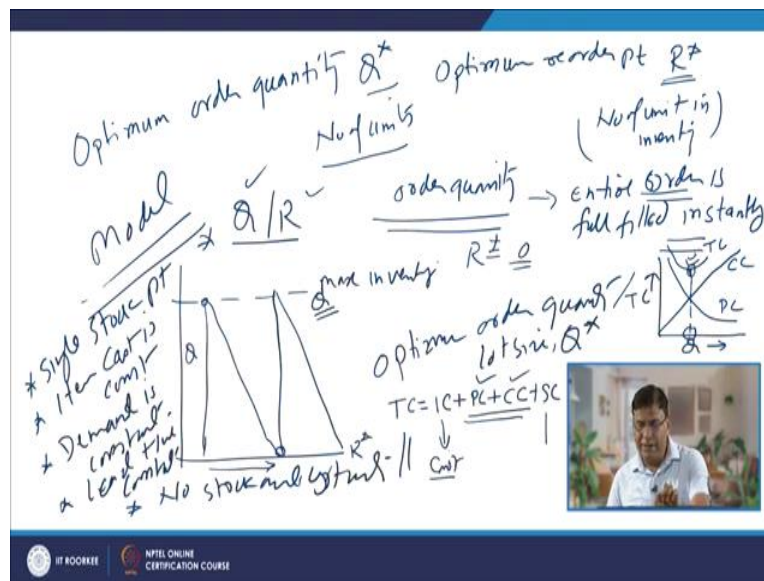 Optimum order quantity Q*
No of units
Optimum reorder pt R*
(No of unit in
inventy)
Model
* Q/R
order quantity → entire order is
full filled instantly
R* = 0
max inventy
Q
Q
R*
* Single Stock pt
* Item Cost is
const
* Demand is
constant
* Lead time
* No stock out
Optimum order quant /
lot size, Q*
TC = IC + PC + CC + SC
Const
TC↑
TC
CC
PC
Q →
IIT ROORKEE
NPTEL ONLINE
CERTIFICATION COURSE